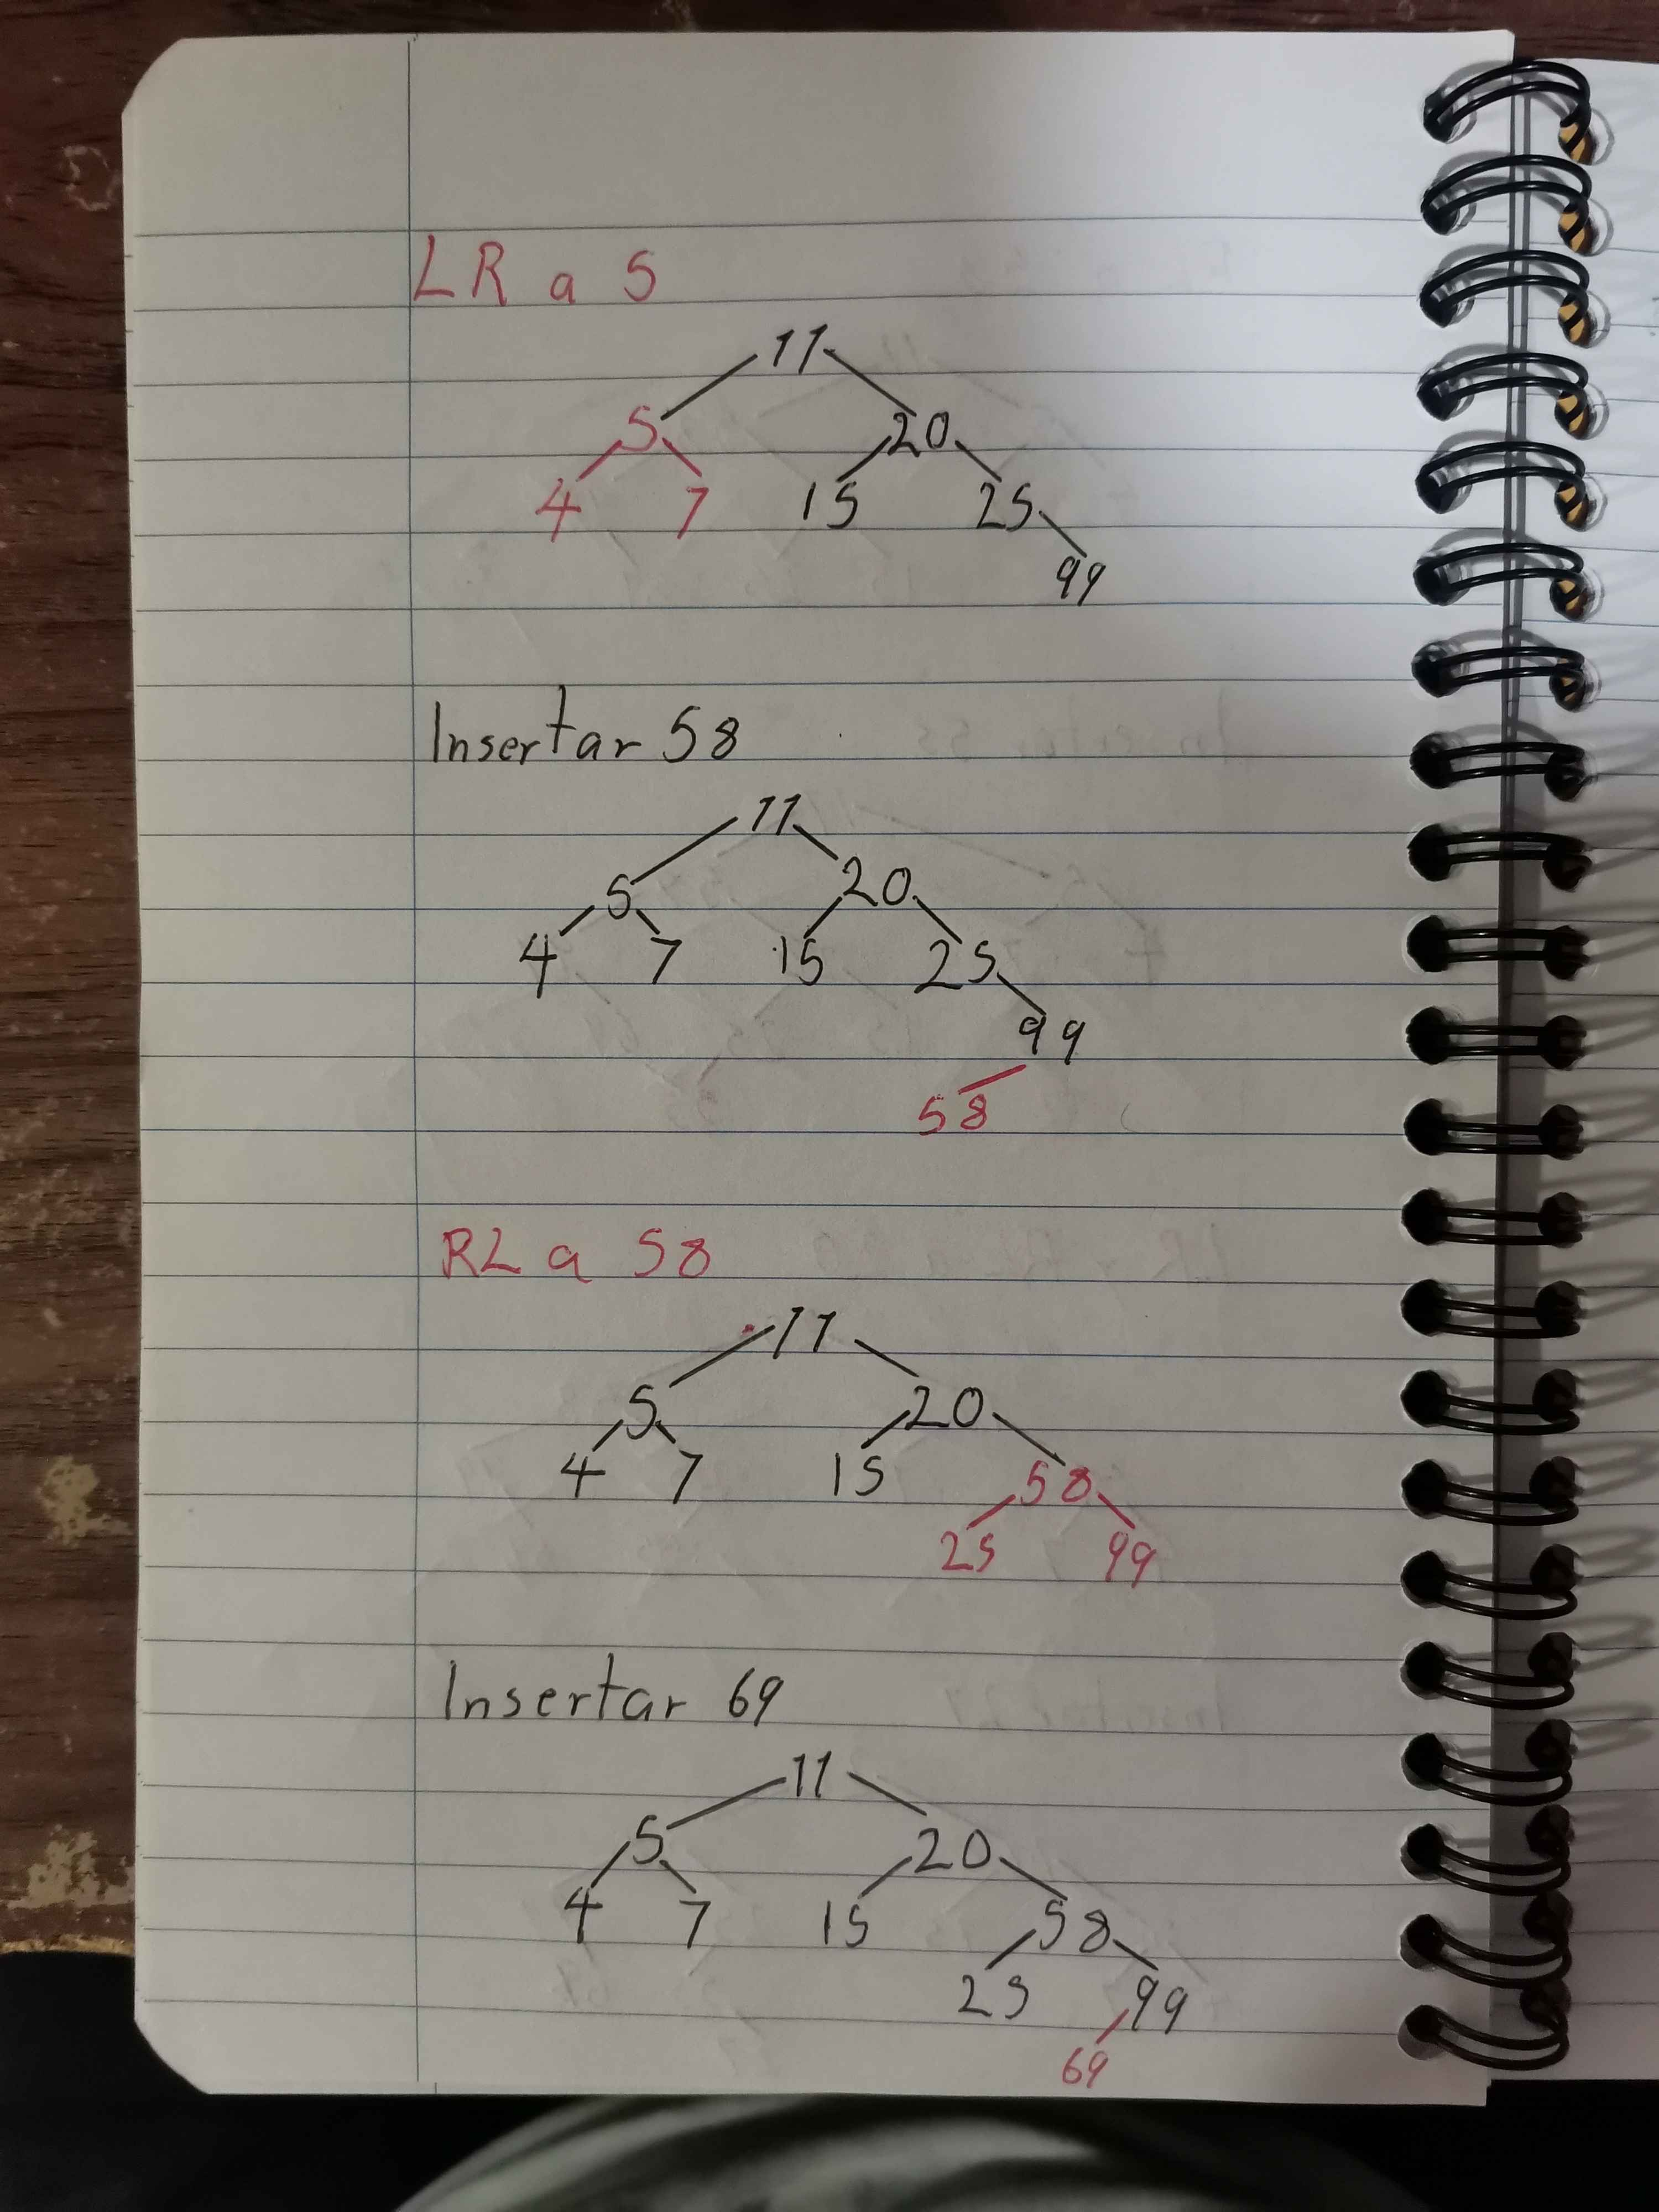 LR a 5
11
5 20
4 7 15 25
99
Insertar 58
11
5 20
4 7 15 25
99
58
RL a 58
11
5 20
4 7 15 58
25 99
Insertar 69
11
5 20
4 7 15 58
25 99
69